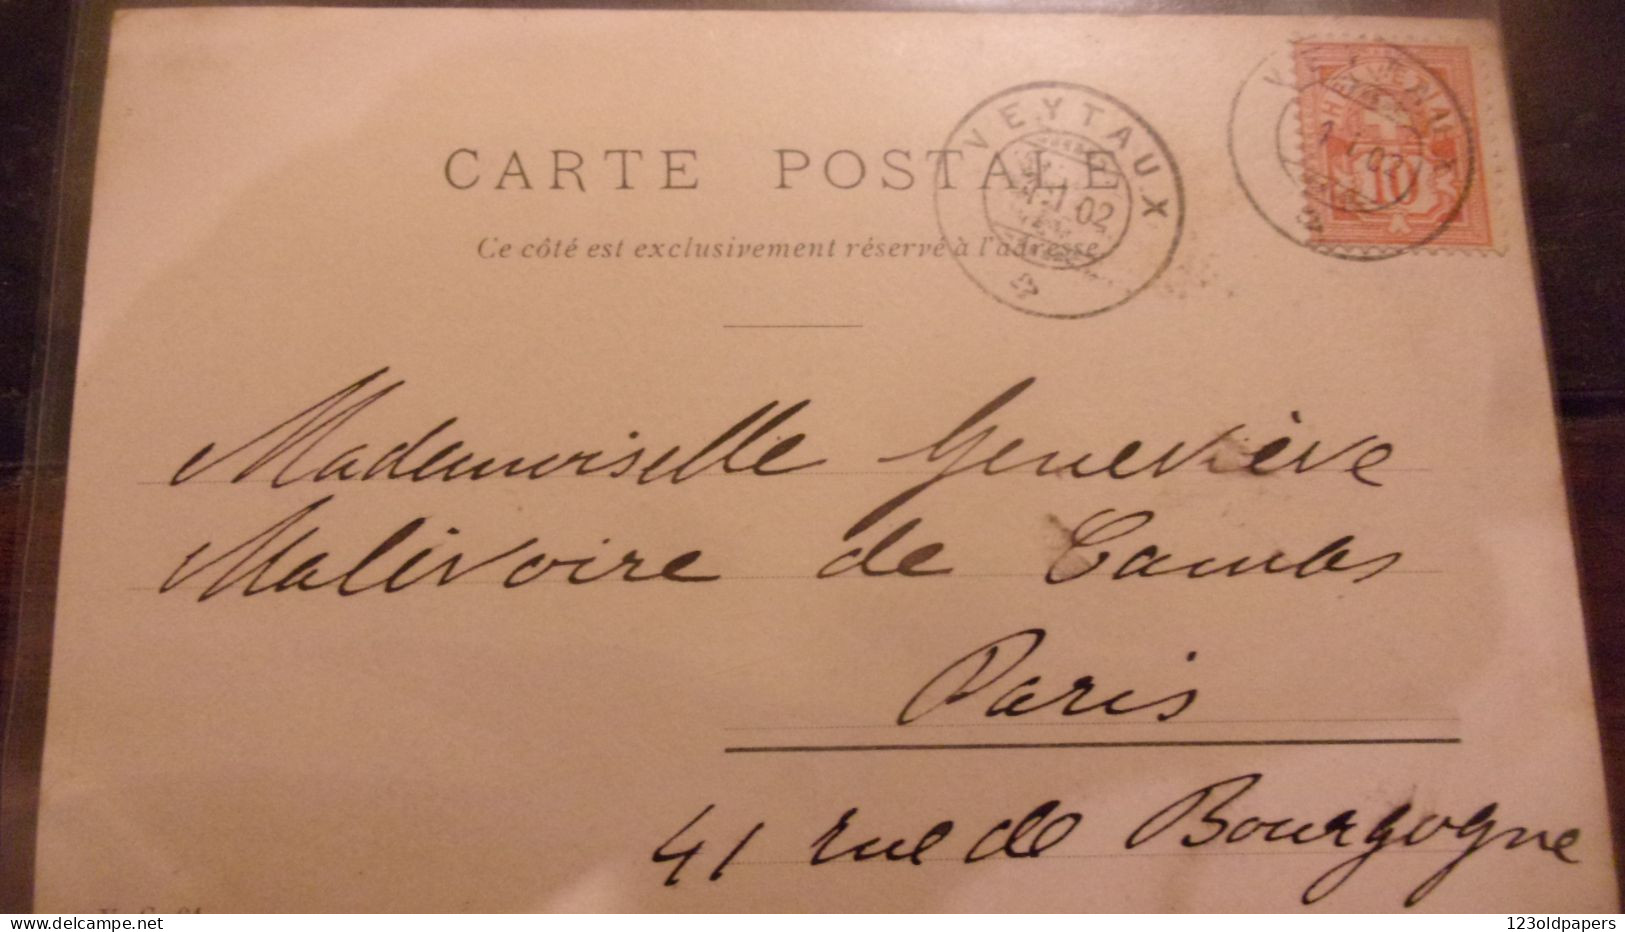 CARTE POSTALE
Ce côté est exclusivement réservé à l'adresse
VEYTAUX
1 02
HELVETIA
10
Mademoiselle Geneviève
Malivoire de Camas
Paris
41 rue de Bourgogne
123oldpapers